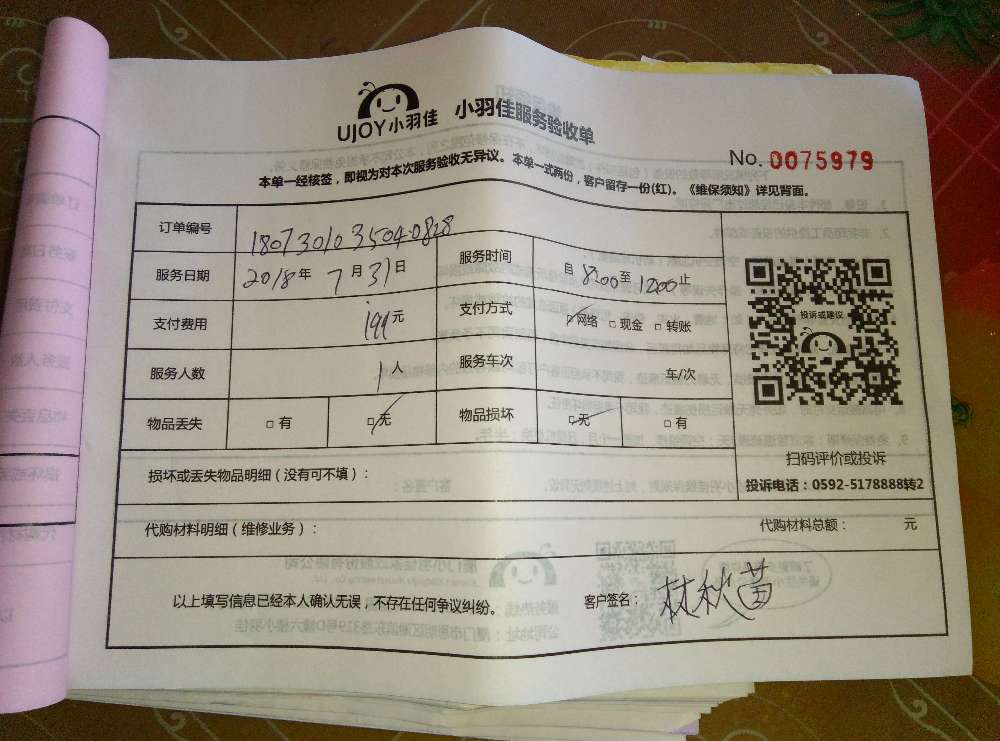 UJOY小羽佳 小羽佳服务验收单
No. 0075979
本单一经核签，即视为对本次服务验收无异议。本单一式两份，客户留存一份(红)。《维保须知》详见背面。
订单编号 1807301035040828
服务日期 2018年 7月31日 服务时间 自 8:00至 12:00止
支付费用 199元 支付方式 ☑网络 □现金 □转账
服务人数 1人 服务车次 车/次
物品丢失 □有 ☑无 物品损坏 ☑无 □有
投诉或建议
扫码评价或投诉
投诉电话：0592-5178888转2
损坏或丢失物品明细（没有可不填）：
代购材料明细（维修业务）： 代购材料总额： 元
以上填写信息已经本人确认无误，不存在任何争议纠纷。 客户签名：林秋苗